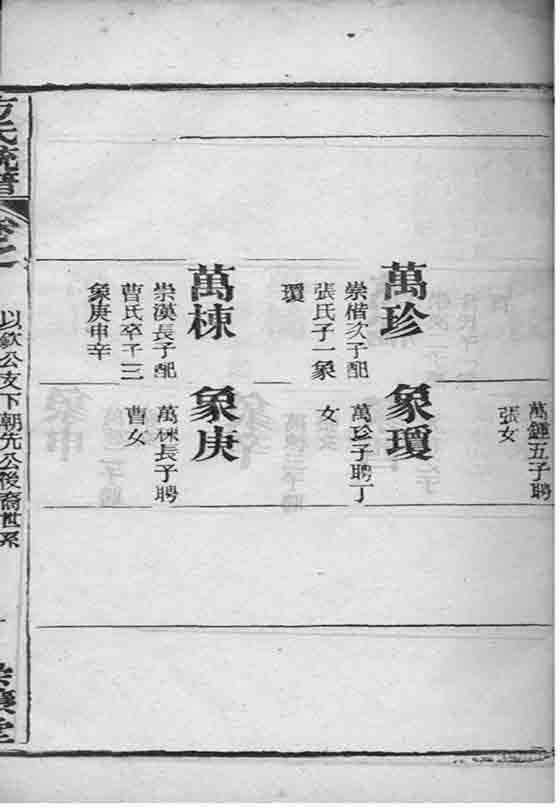 萬鍾五子聘
張女
萬珍
崇楷次子配
張氏子一象
瓊
象瓊
萬珍子聘丁
女
萬棟
崇漢長子配
曹氏卒子三
象庚申辛
象庚
萬棟長子聘
曹女
方氏統譜
卷之一
以欽公支下朝先公後裔世系